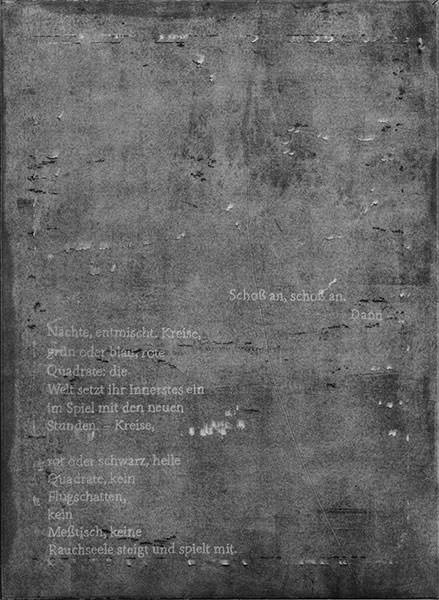 Schoß an, schoß an.
Dann
Nächte, entmischt. Kreise,
grün oder blau, rote
Quadrate: die
Welt setzt ihr Innerstes ein
im Spiel mit den neuen
Stunden. – Kreise,
rot oder schwarz, helle
Quadrate, kein
Flugschatten,
kein
Meßtisch, keine
Rauchseele steigt und spielt mit.